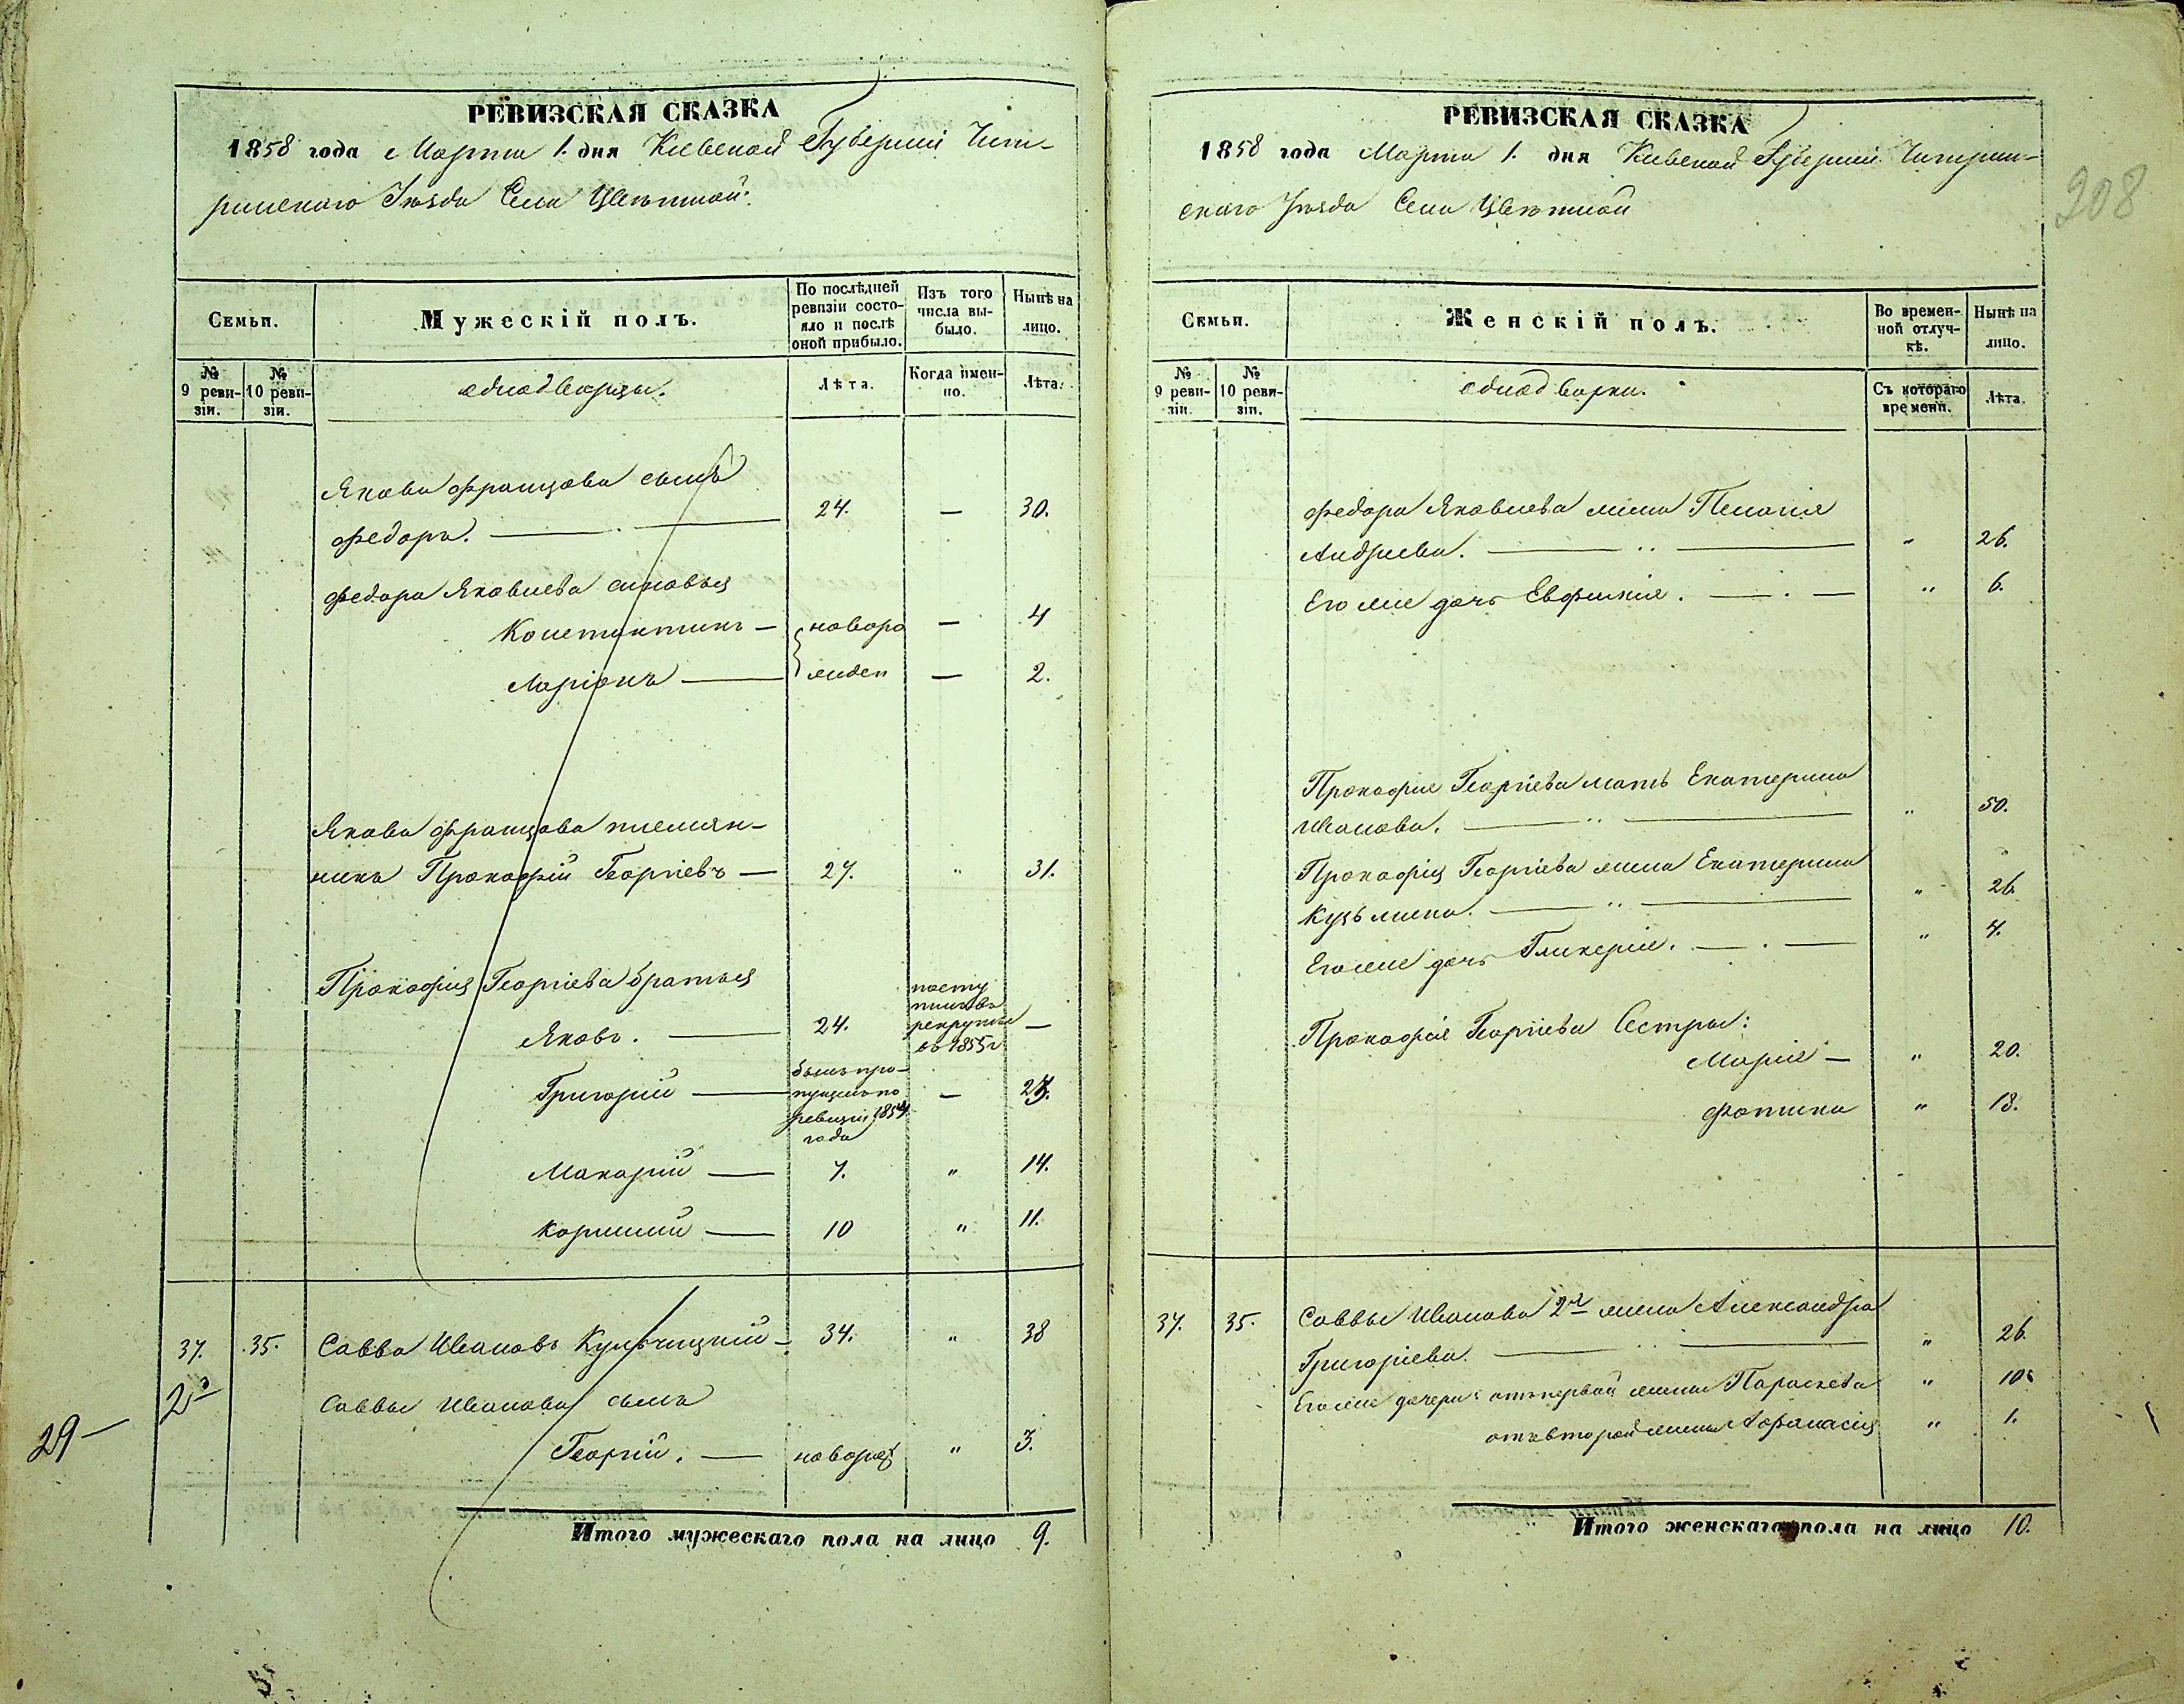 РЕВИЗСКАЯ СКАЗКА
1858 года Марта 1. дня Киевской Губерніи Чиги-
ринскаго Уѣзда Села Цвѣтной.
Семьи.
Мужескій полъ.
По послѣдней ревизіи состо-
яло и послѣ оной прибыло.
Изъ того числа вы-
было.
Нынѣ на лицо.
№ 9 реви-
зіи.
№ 10 реви-
зіи.
однодворцы.
Лѣта.
Когда имен-
но.
Лѣта.
Якова Францова сынъ
Федоръ. 24. — 30.
Федора Яковлева сыновья
Константинъ — новоро — 4
Ларіонъ — жден — 2.
Якова Францова племян-
никъ Прокофій Георгіевъ — 27. " 31.
Прокофія Георгіева братья
Яковъ. — 24. посту
пилъ въ
рекруты
въ 1855 г. —
Григорій — былъ про-
пущенъ по
ревизіи 1854
года — 23.
Макарій — 7. " 14.
Корнилій — 10 " 11.
37. 35. Савва Ивановъ Кульчицкій — 34. " 38
2
29 —
Саввы Иванова сынъ
Георгій. — новорож " 3.
Итого мужескаго пола на лицо 9.
РЕВИЗСКАЯ СКАЗКА
1858 года Марта 1. дня Киевской Губерніи Чигирин-
скаго Уѣзда Села Цвѣтной
208
Семьи.
Женскій полъ.
Во времен-
ной отлуч-
кѣ.
Нынѣ на лицо.
№ 9 реви-
зіи.
№ 10 реви-
зіи.
однодворки.
Съ котораго времени.
Лѣта.
Федора Яковлева жена Пелагія
Андреева. " 26.
Его же дочь Евфимія. " 6.
Прокофія Георгіева мать Екатерина
Иванова. " 50.
Прокофія Георгіева жена Екатерина
Кузьмина. " 26.
Его же дочь Гликерія. " 4.
Прокофія Георгіева Сестры:
Марія — " 20.
Фотина " 18.
37. 35. Саввы Иванова 2я жена Александра
Григоріева. " 26.
Его же дочери: отъ первой жены Параскева " 10.
отъ второй жены Афанасія " 1.
Итого женскаго пола на лицо 10.